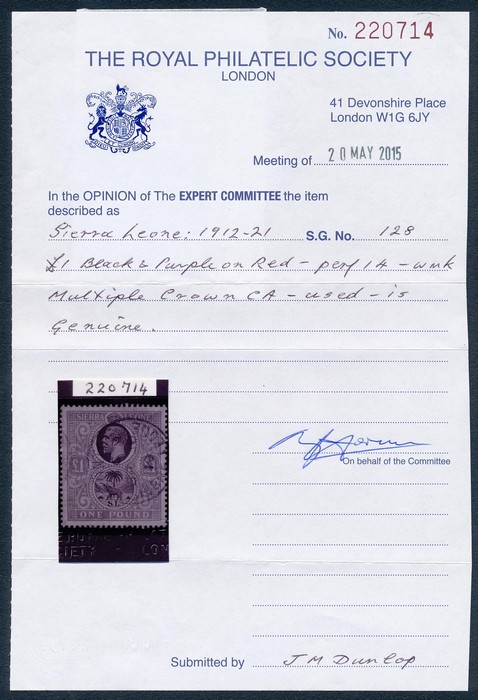 No. 220714
THE ROYAL PHILATELIC SOCIETY
LONDON
41 Devonshire Place
London W1G 6JY
Meeting of 20 MAY 2015
In the OPINION of The EXPERT COMMITTEE the item
described as
Sierra Leone: 1912-21 S.G. No. 128
£1 Black & Purple on Red - perf 14 - wmk
Multiple Crown CA - used - is
Genuine.
220714
SIERRA LEONE
ONE POUND
On behalf of the Committee
Submitted by J M Dunlop